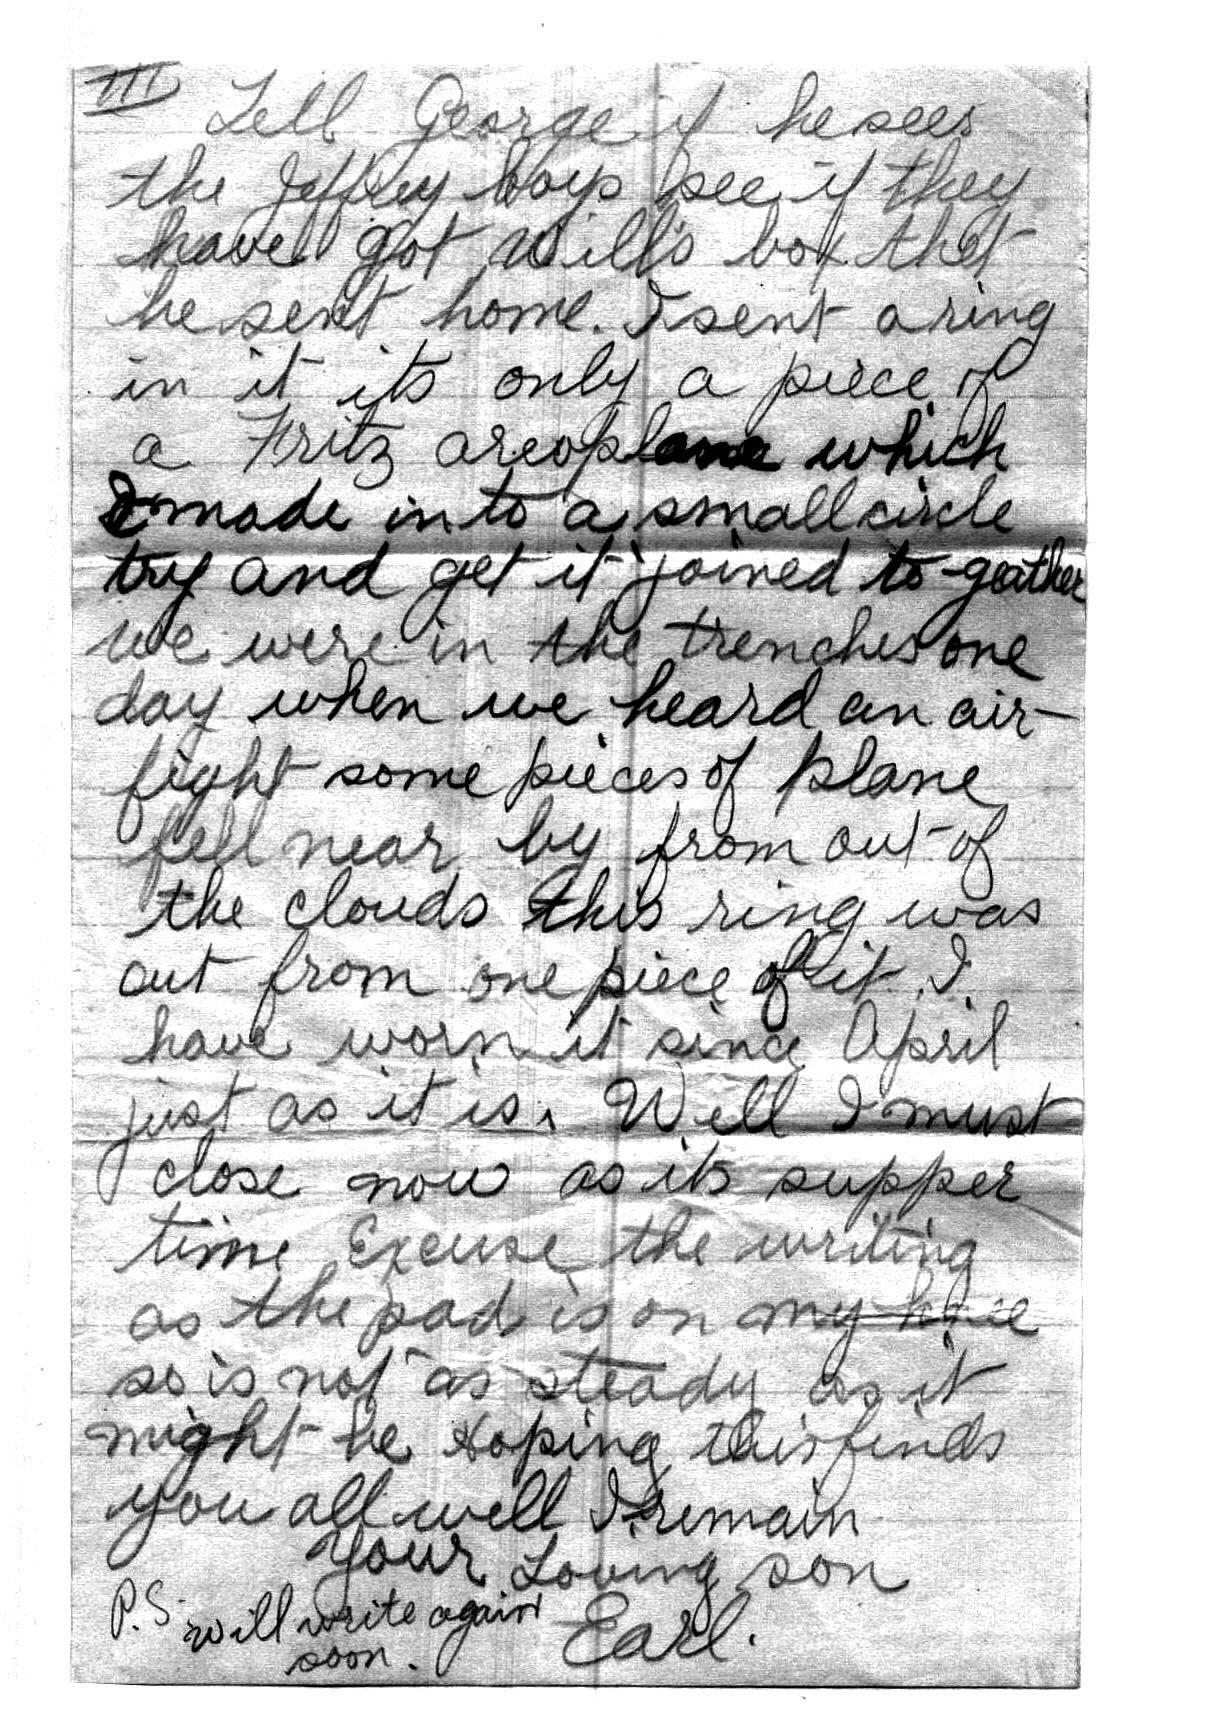 III
Tell George if he sees
the Jeffrey boys see if they
have got Will's box that
he sent home. I sent a ring
in it its only a piece of
a Fritz areoplane which
I made into a small circle
try and get it joined to-geather
we were in the trenches one
day when we heard an air-
fight some pieces of plane
fell near by from out of
the clouds this ring was
out from one piece of it. I
have worn it since April
just as it is. Well I must
close now as its supper
time Excuse the writing
as the pad is on my knee
so is not as steady as it
might be Hoping this finds
you all well I remain
Your Loving son
Earl.
P.S. will write again
soon.